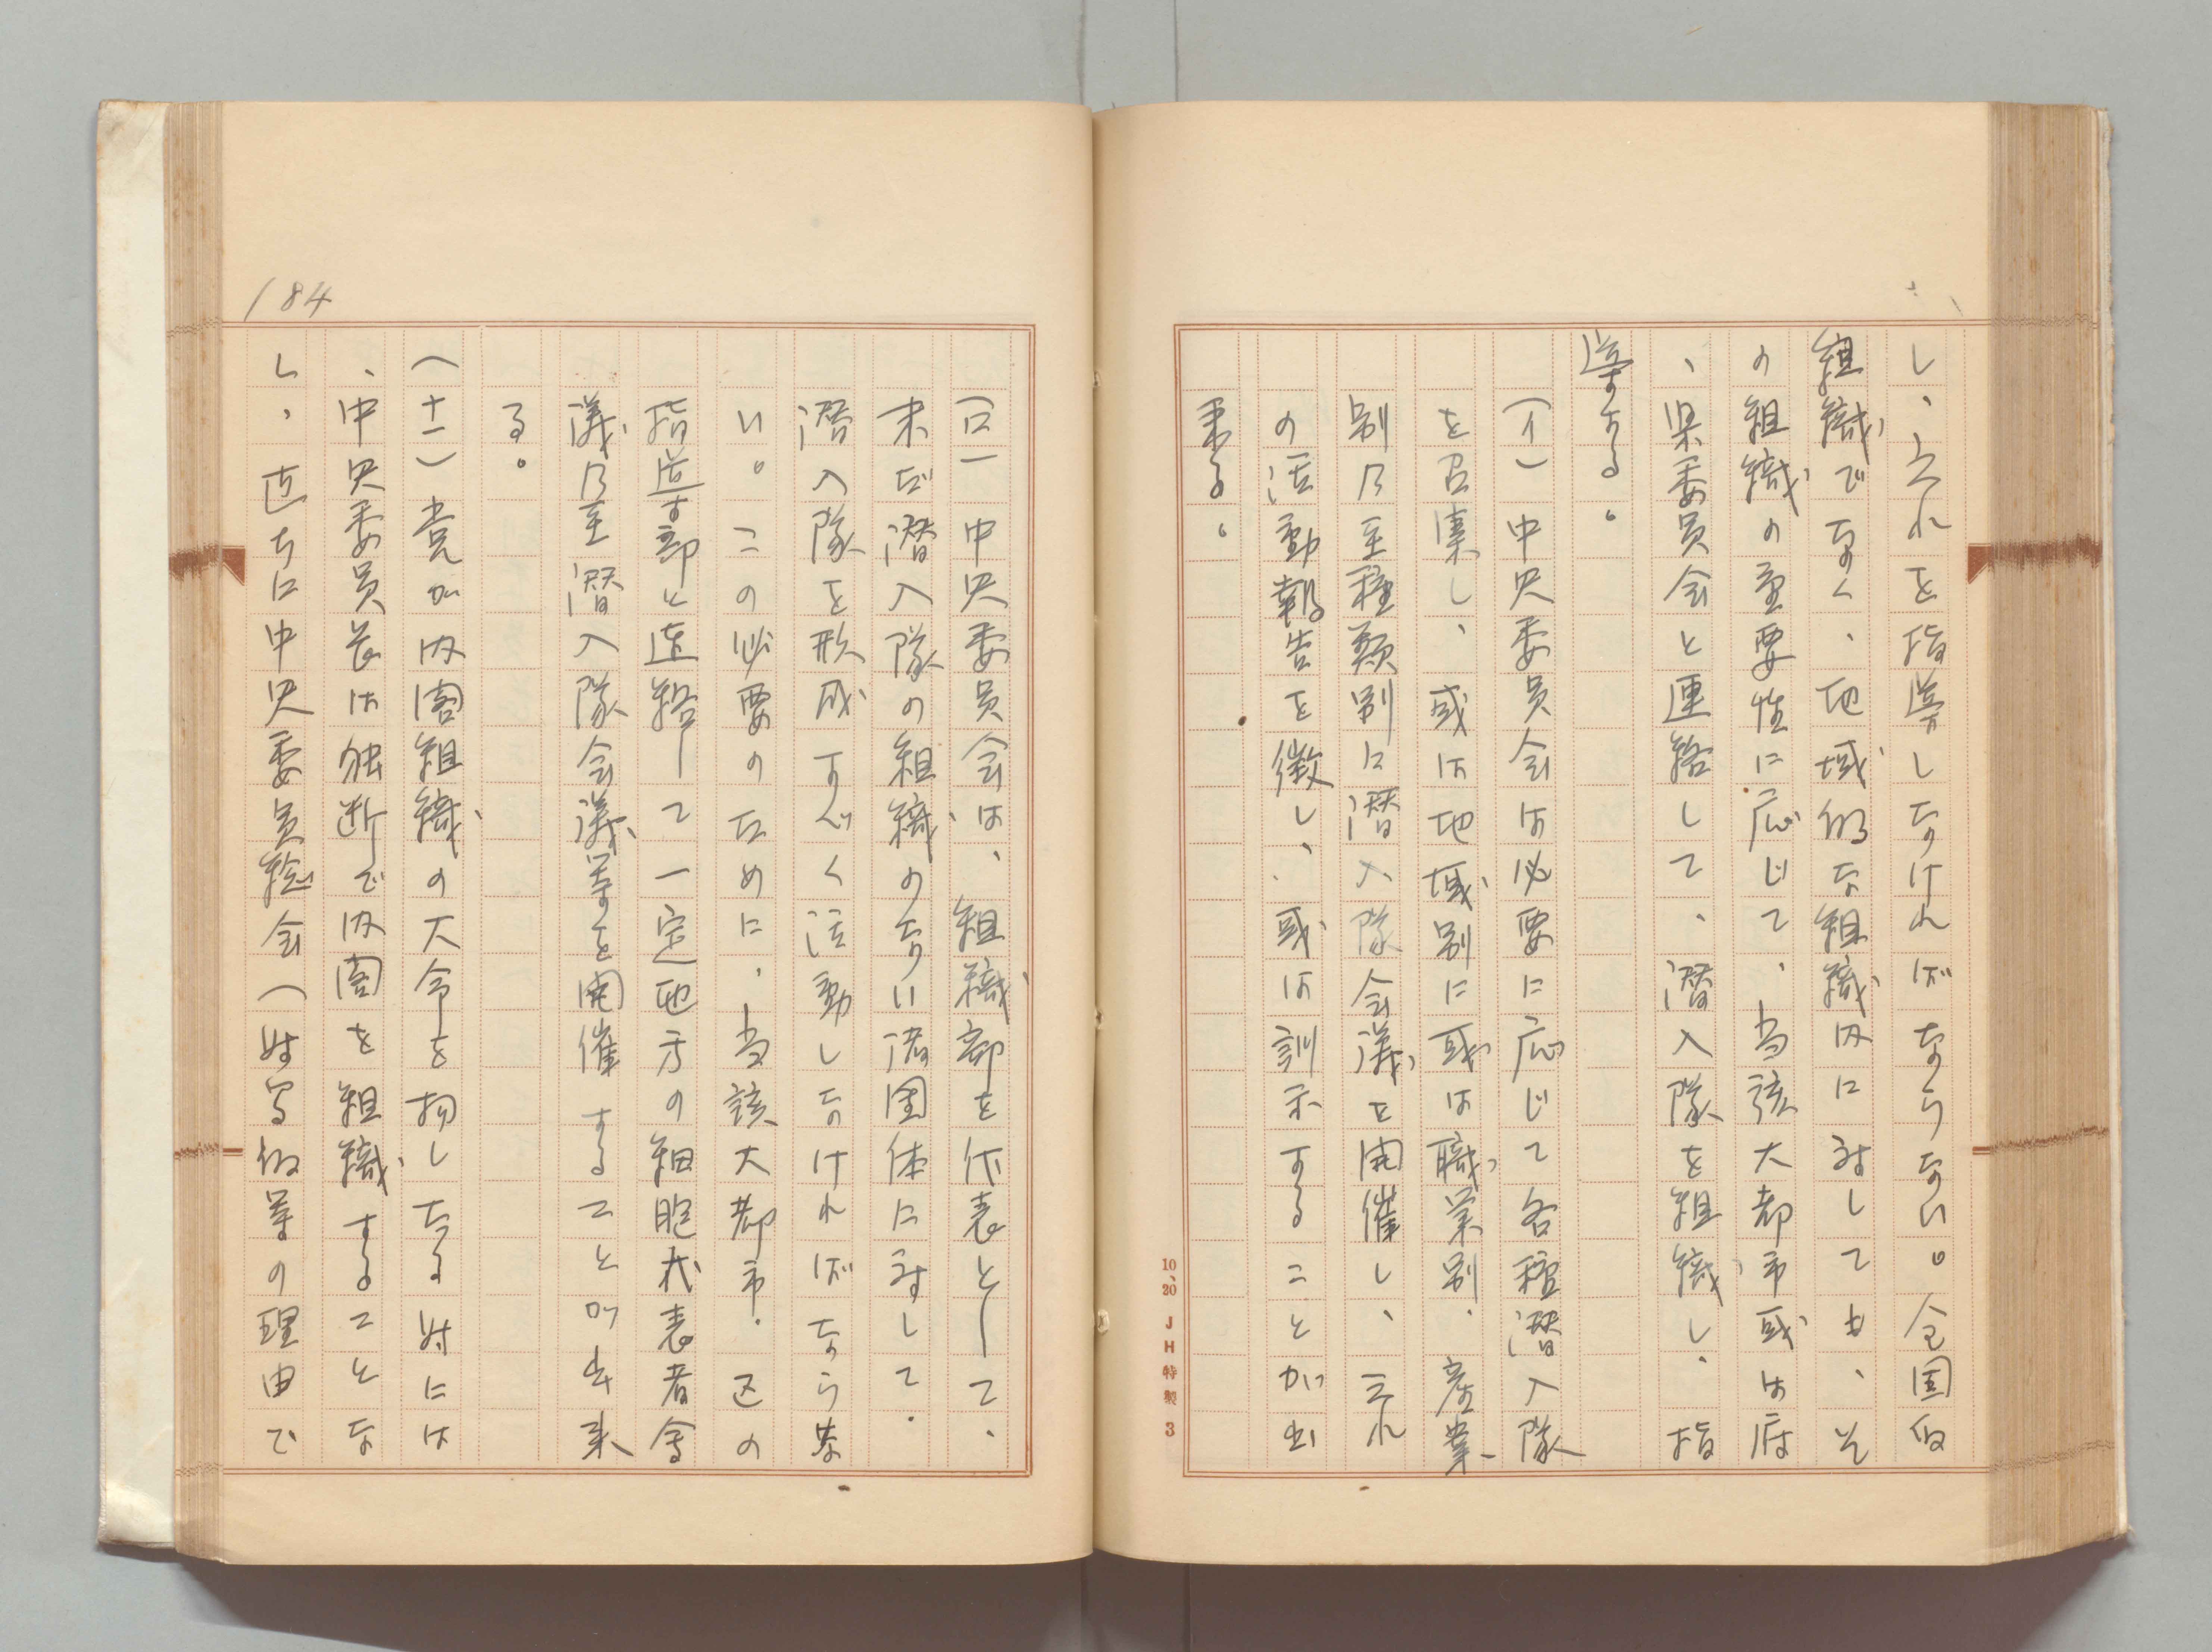 し、之れを指導しなければならない。全国的
組織でなく、地域的な組織内に対しても、そ
の組織の重要性に応じて、当該大都市或は府
、県委員会と連絡して、潜入隊を組織し、指
導する。
(イ)中央委員会は必要に応じて各種潜入隊
を召集し、或は地域別に或は職業別、産業
別乃至種類別に潜入隊会議を開催し、之れ
の活動報告を徴し、或は訓示することが出
来る。
10、20 JH特製 3
(ロ)中央委員会は、組織部を代表として、
未だ潜入隊の組織のない諸団体に対して、
潜入隊を形成すべく活動しなければならな
い。この必要のために、当該大都市、区の
指導部と連絡して一定地方の細胞代表者会
議乃至潜入隊会議等を開催することが出来
る。
(十一)党が内閣組織の大命を拘したる時には
、中央委員長は独断で内閣を組織することな
し、直ちに中央委員総会(時間的等の理由で
184